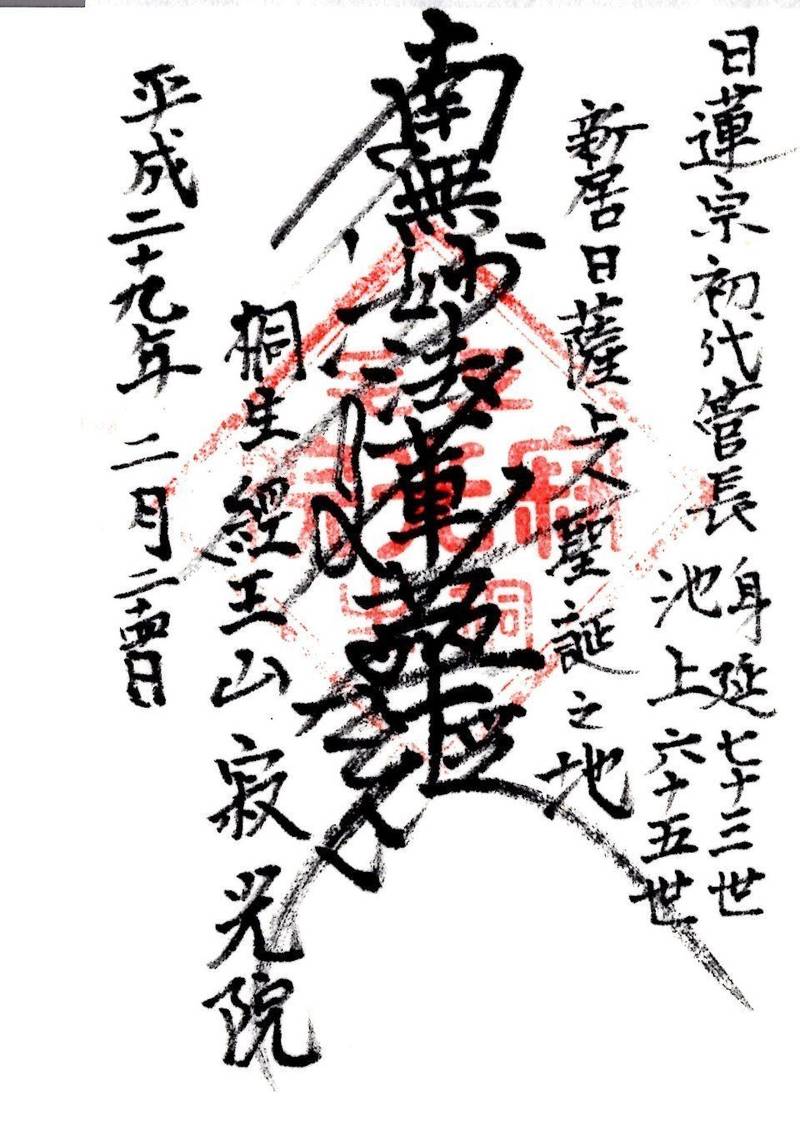 日蓮宗初代管長
身延七十三世
池上六十五世
新居日薩上人聖誕之地
南無妙法蓮華経
桐生 経王山 寂光院
平成二十九年 二月二十四日